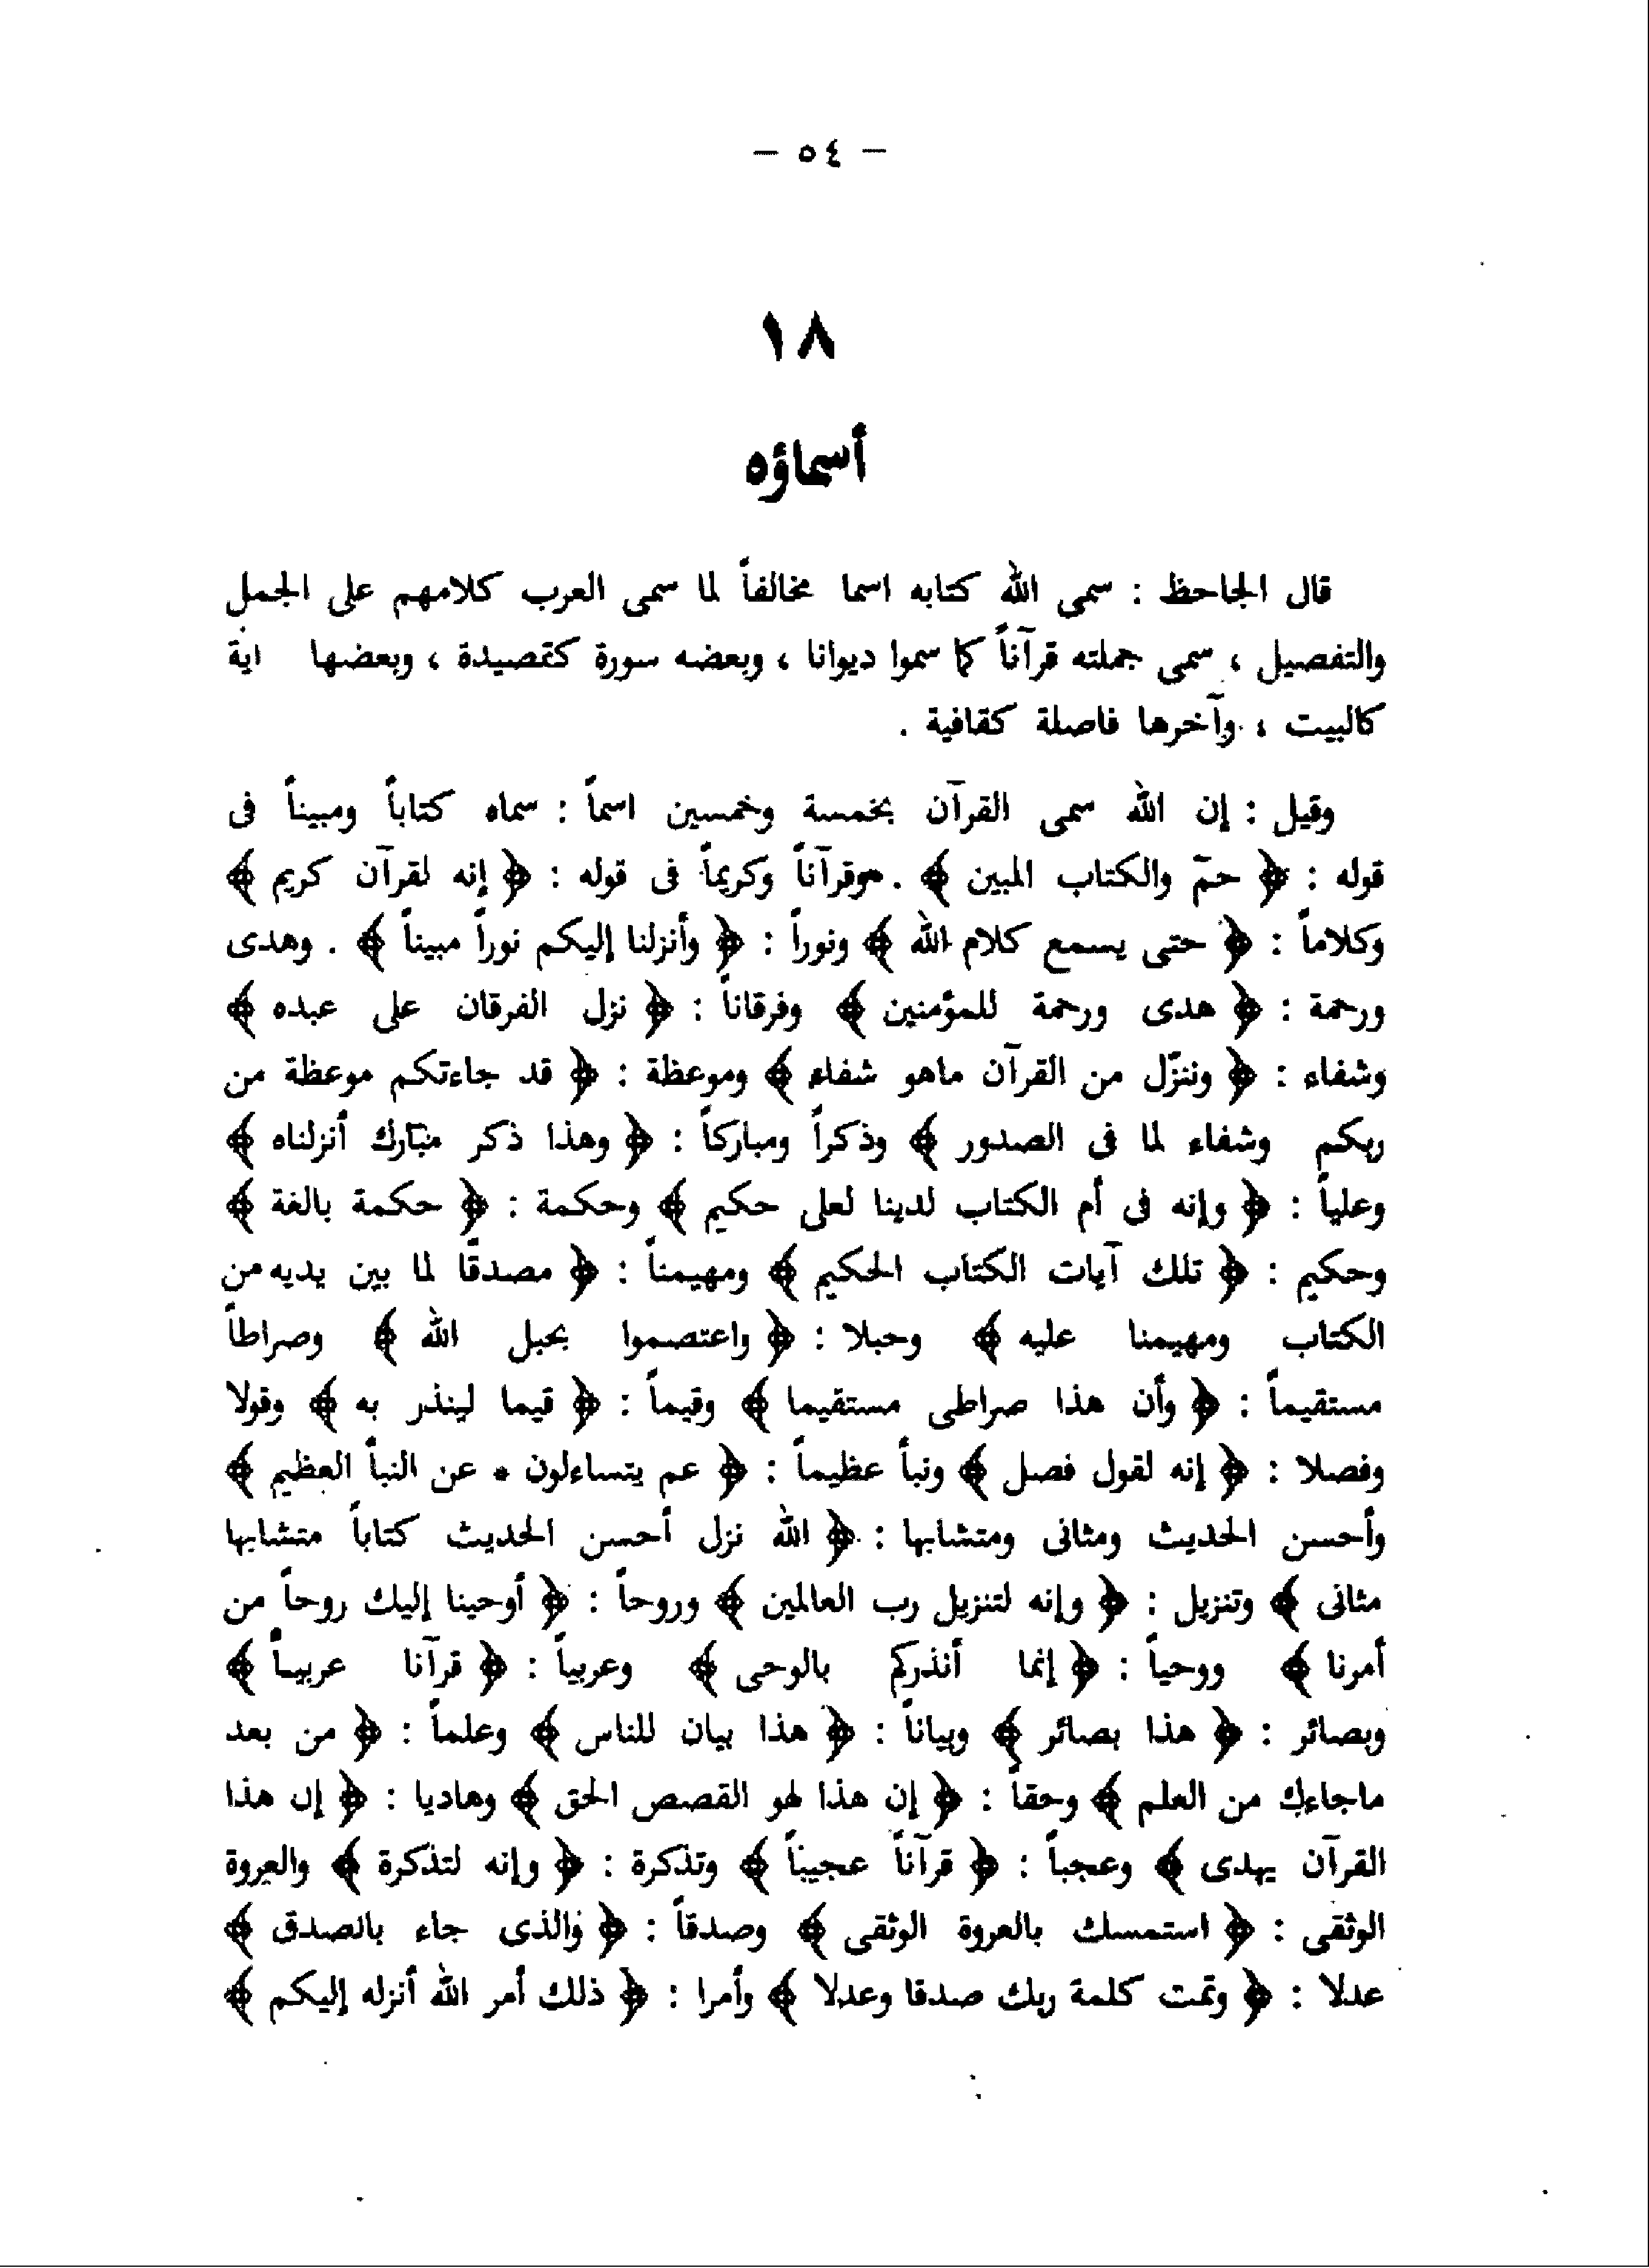 — ٥٤ —
١٨
أسماؤه
قال الجاحظ : سمى الله كتابه اسما مخالفاً لما سمى العرب كلامهم على الجمل
والتفصيل ، سمى جملته قرآناً كما سموا ديوانا ، وبعضه سورة كقصيدة ، وبعضها آية
كالبيت ، وآخرها فاصلة كقافية .
وقيل : إن الله سمى القرآن بخمسة وخمسين اسماً : سماه كتاباً ومبيناً فى
قوله : ﴿ حمّ والكتاب المبين ﴾ . وقرآناً وكريماً فى قوله : ﴿ إنه لقرآن كريم ﴾
وكلاماً : ﴿ حتى يسمع كلام الله ﴾ ونوراً : ﴿ وأنزلنا إليكم نوراً مبيناً ﴾ . وهدى
ورحمة : ﴿ هدى ورحمة للمؤمنين ﴾ وفرقاناً : ﴿ نزل الفرقان على عبده ﴾
وشفاء : ﴿ وننزّل من القرآن ماهو شفاء ﴾ وموعظة : ﴿ قد جاءتكم موعظة من
ربكم وشفاء لما فى الصدور ﴾ وذكراً ومباركاً : ﴿ وهذا ذكر مبارك أنزلناه ﴾
وعلياً : ﴿ وإنه فى أم الكتاب لدينا لعلى حكيم ﴾ وحكمة : ﴿ حكمة بالغة ﴾
وحكيم : ﴿ تلك آيات الكتاب الحكيم ﴾ ومهيمناً : ﴿ مصدقًا لما بين يديه من
الكتاب ومهيمنا عليه ﴾ وحبلا : ﴿ واعتصموا بحبل الله ﴾ وصراطاً
مستقيماً : ﴿ وأن هذا صراطى مستقيما ﴾ وقيماً : ﴿ قيما لينذر به ﴾ وقولا
وفصلا : ﴿ إنه لقول فصل ﴾ ونبأ عظيماً : ﴿ عم يتساءلون * عن النبأ العظيم ﴾
وأحسن الحديث ومثانى ومتشابها : ﴿ الله نزل أحسن الحديث كتاباً متشابها
مثانى ﴾ وتنزيل : ﴿ وإنه لتنزيل رب العالمين ﴾ وروحاً : ﴿ أوحينا إليك روحاً من
أمرنا ﴾ ووحياً : ﴿ إنما أنذركم بالوحى ﴾ وعربياً : ﴿ قرآنا عربيـاً ﴾
وبصائر : ﴿ هذا بصائر ﴾ وبياناً : ﴿ هذا بيان للناس ﴾ وعلماً : ﴿ من بعد
ماجاءك من العلم ﴾ وحقاً : ﴿ إن هذا لهو القصص الحق ﴾ وهاديا : ﴿ إن هذا
القرآن يهدى ﴾ وعجباً : ﴿ قرآناً عجيباً ﴾ وتذكرة : ﴿ وإنه لتذكرة ﴾ والعروة
الوثقى : ﴿ استمسك بالعروة الوثقى ﴾ وصدقاً : ﴿ والذى جاء بالصدق ﴾
عدلا : ﴿ وتمت كلمة ربك صدقا وعدلا ﴾ وأمرا : ﴿ ذلك أمر الله أنزله إليكم ﴾